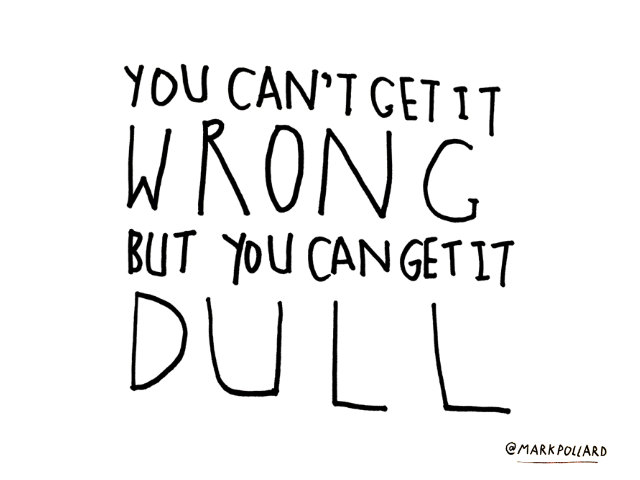 YOU CAN'T GET IT
WRONG
BUT YOU CAN GET IT
DULL
@MARKPOLLARD